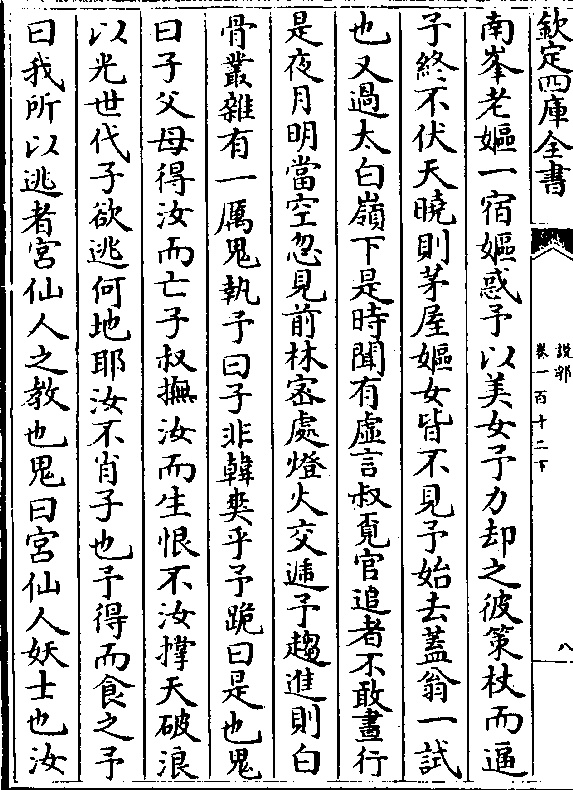 欽定四庫全書
說郛
卷一百十二下
八
南峯老嫗一宿嫗惑予以美女予力却之彼策杖而逼
予終不伏天曉則茅屋嫗女皆不見予始去蓋翁一試
也又過太白嶺下是時聞有虛言叔覔官追者不敢晝行
是夜月明當空忽見前林宻處燈火交遞予趨進則白
骨叢雜有一厲鬼執予曰子非韓爽乎予跪曰是也鬼
曰子父母得汝而亡子叔撫汝而生恨不汝撑天破浪
以光世代子欲逃何地耶汝不肖子也予得而食之予
曰我所以逃者宮仙人之教也鬼曰宮仙人妖士也汝